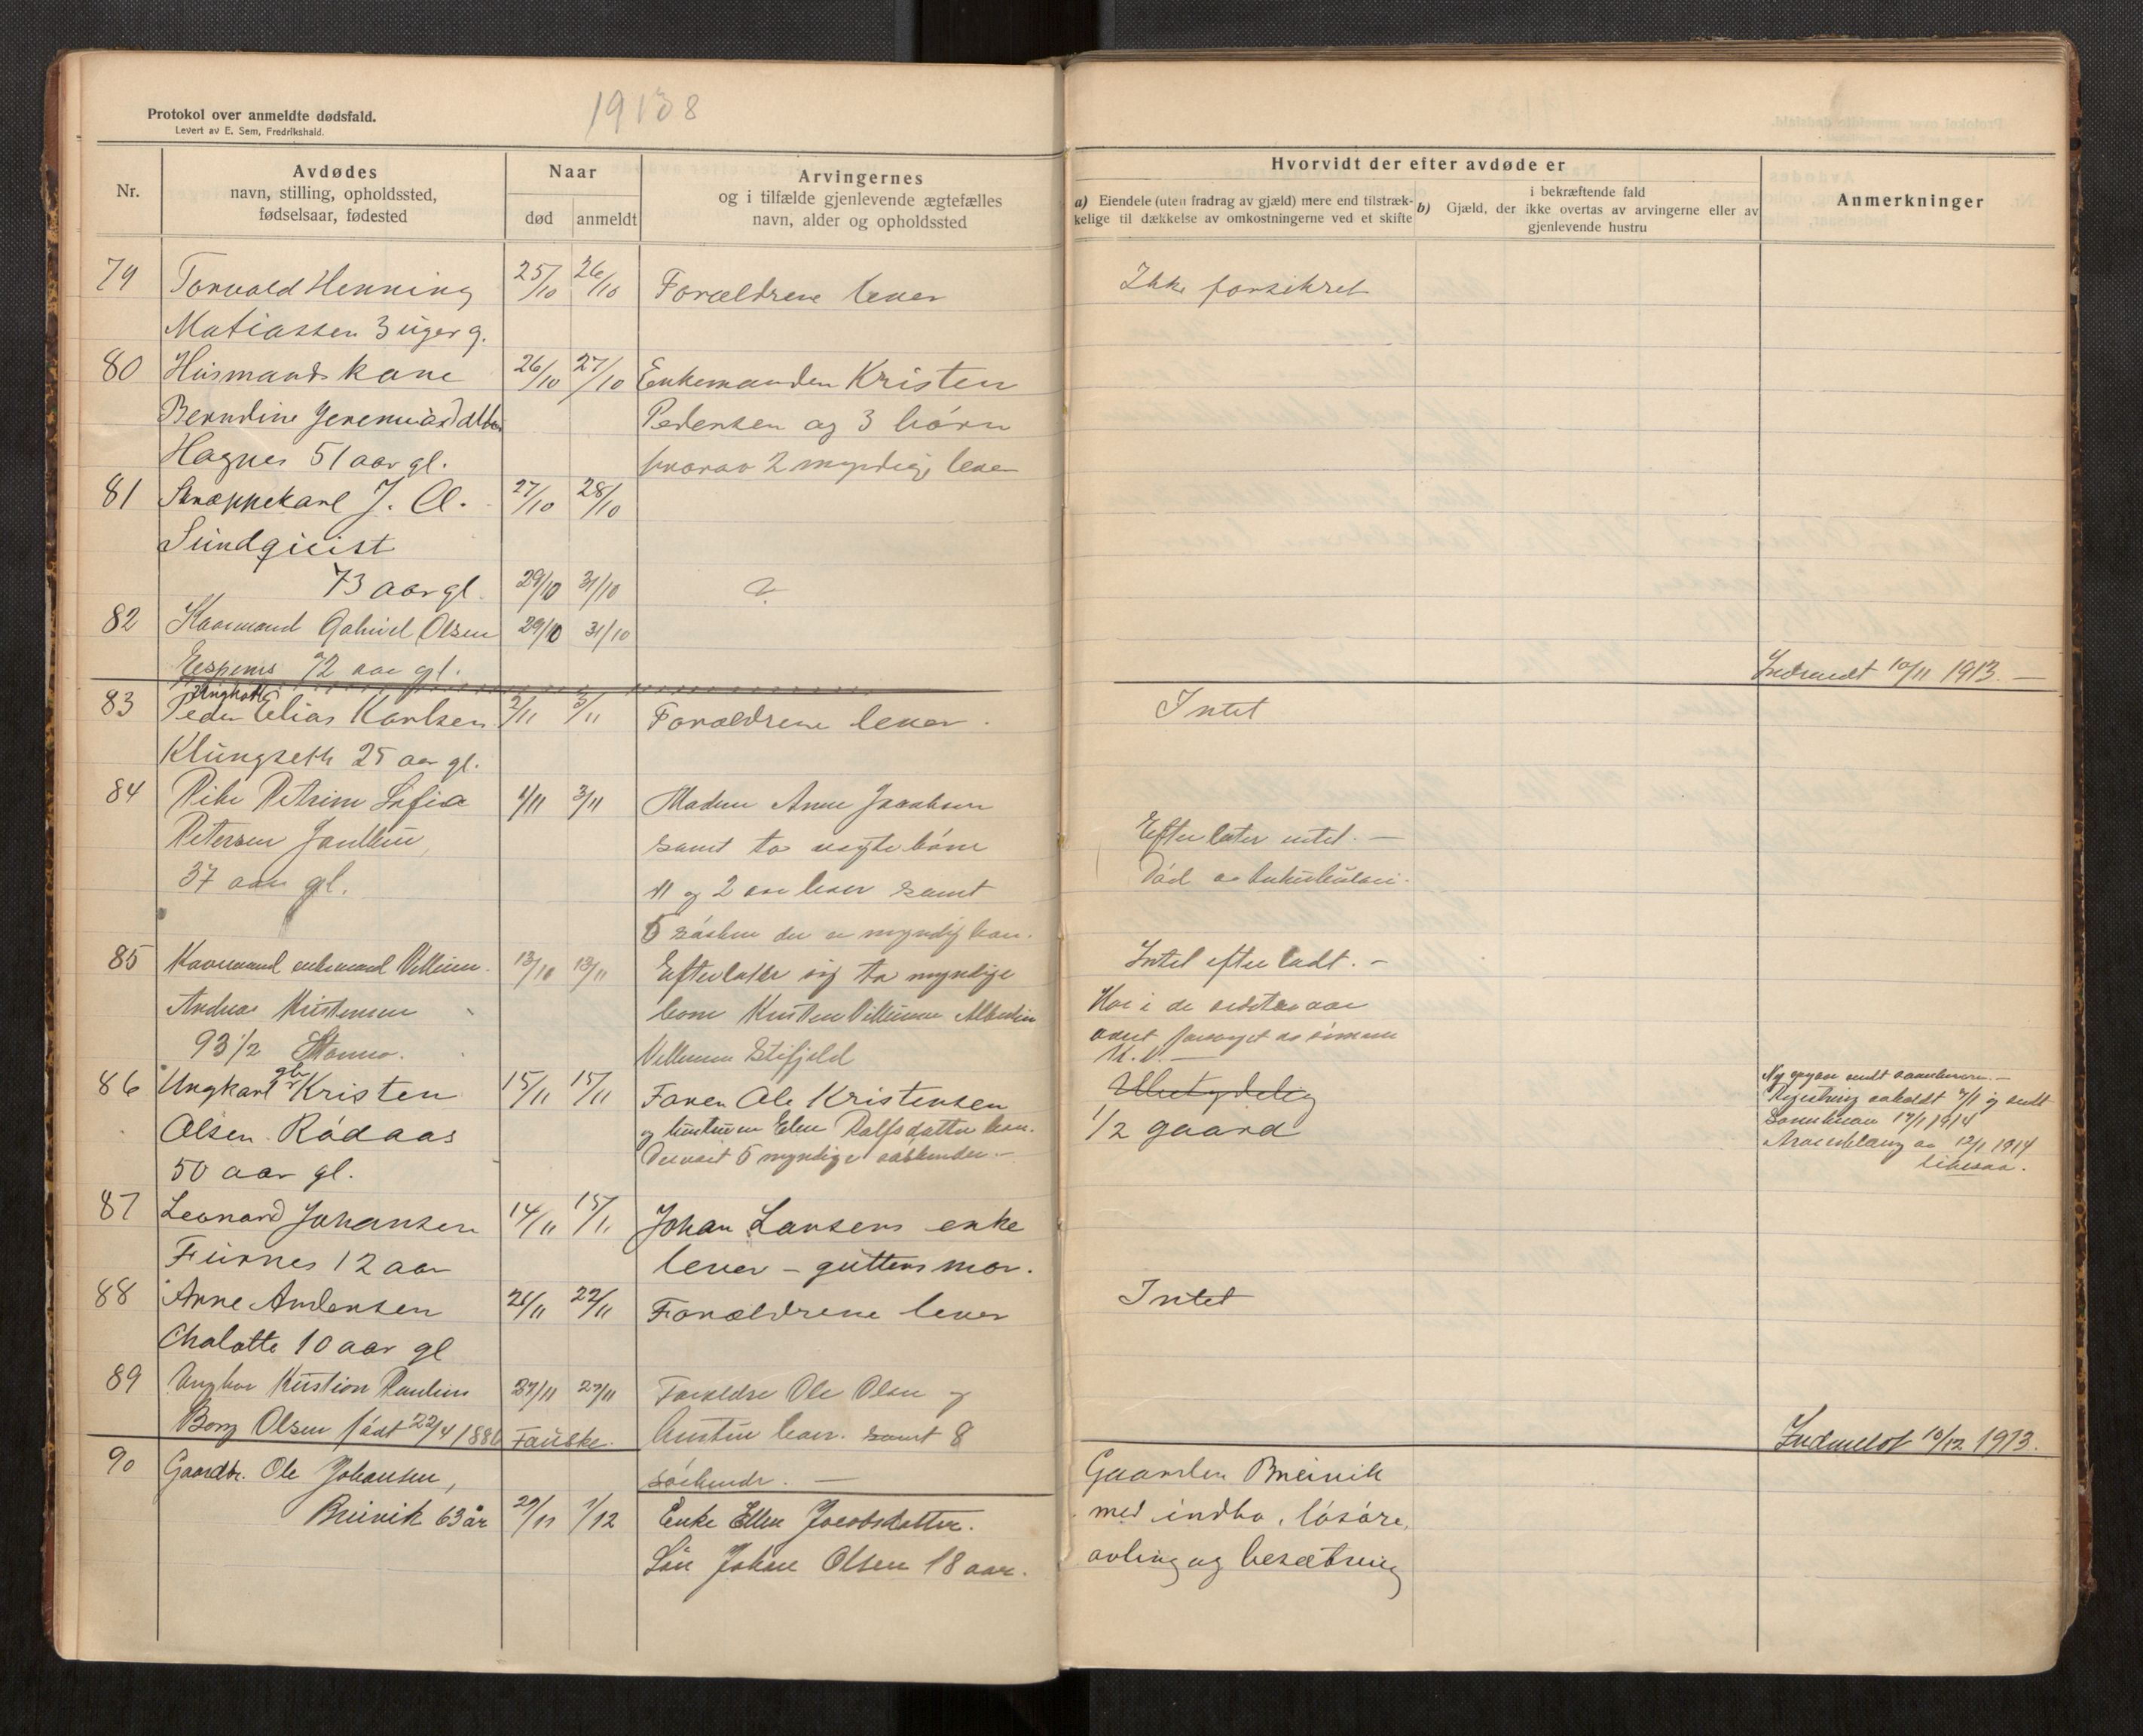 Protokol over anmeldte dødsfald.
Levert av E. Sem, Fredrikshald.
1913
Nr.
Avdødes
navn, stilling, opholdssted,
fødselsaar, fødested
Naar
død
anmeldt
Arvingernes
og i tilfælde gjenlevende ægtefælles
navn, alder og opholdssted
Hvorvidt der efter avdøde er
a) Eiendele (uten fradrag av gjæld) mere end tilstræk-
kelige til dækkelse av omkostningerne ved et skifte
b) Gjæld, der
i bekræftende fald
ikke overtas av arvingerne eller av
gjenlevende hustru
Anmerkninger
79 Torvald Henning 25/10 26/10 Forældrene lever Ikke forsikret
Matiassen 3 uger g.
80 Husmands kone 26/10 27/10 Enkemanden Kristen
Berndine Pedersen og 3 børn
Hagnes 51 aar gl. hvorav 2 myndig, lever
81 J. A. 27/10 28/10
Sundquist
73 aar gl. 29/10 31/10 ?
82 Kaarmand Gabriel Olsen 29/10 31/10
Espenes 72 aar gl. Indsendt 10/11 1913. —
83 Peder Elias Karlsen 2/11 3/11 Forældrene lever. Intet
Klungseth 25 aar gl.
84 Pike Petrine Sofia 1/11 3/11 Moderen Anne Jacobsen
Petersen samt to uegte børn Efterlater intet. —
37 aar gl. 11 og 2 aar lever samt Død av tuberkulose.
5 søsken der er myndig
85 Kaarmand enkemand Villum 13/10 13/11 Efterlater sig to myndige Intet efterladt. –
Andreas Kristensen børn Kristen Villumsen Har i de sidste aar
93 1/2 Villumsen Stifjeld været forsørget av sønnen
K. V. —
86 Ungkarl Kristen 15/11 15/11 Faren Ole Kristensen Ubetydelig
Olsen Rödaas og hustruen Elen Rolfsdatter 1/2 gaard
50 aar gl. 5 myndige søskender. –
Registrering avholdt
1914
12/1 1914
likesaa.
87 Leonard Johansen 14/11 15/11 Johan Larsens enke
Furnes 12 aar lever – guttens mor.
88 Anne Andersen 21/11 22/11 Forældrene lever Intet
Chalotte 10 aar gl
89 Ungkar Kristian Paulius 27/11 29/11 Forældre Ole Olsen og
Borg Olsen født 22/4 188 Fauske. hustru lever. samt 8 Indmeldt 10/12 1913.
søskende. —
90 Gaardbr. Ole Johansen, Gaarden Breivik
Breivik 63 år 29/11 1/12 Enke Ellen Jacobsdatter. med indbo, løsøre,
Søn Johan Olsen 18 aar. avling og besætning